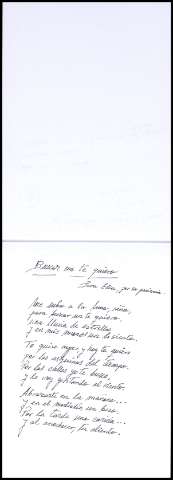 Buscar no te quiero
Me subo a la luna, niña,
para buscar no te quiero,
una lluvia de estrellas
y en mis manos no lo siento.
Te quise ayer, y hoy te quiero
por las esquinas del tiempo.
Por las calles yo te busco,
y te voy gritando al viento.
Abrazarte en la mañana...
y en el mediodía, un beso.
Por la tarde una caricia...
y al anochecer, tu aliento.